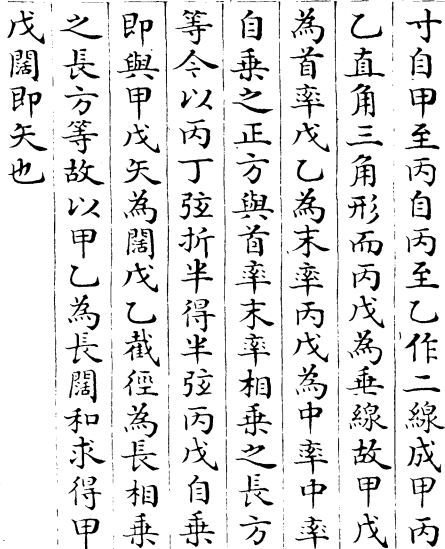 寸自甲至丙自丙至乙作二線成甲丙
乙直角三角形而丙戊為垂線故甲戊
為首率戊乙為末率丙戊為中率中率
自乘之正方與首率末率相乘之長方
等今以丙丁弦折半得半弦丙戊自乘
即與甲戊矢為闊戊乙截徑為長相乘
之長方等故以甲乙為長闊和求得甲
戊闊即矢也